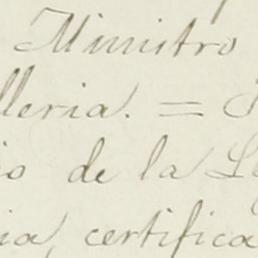 Ministro
lleria. =
io de la Le
ia, certifica